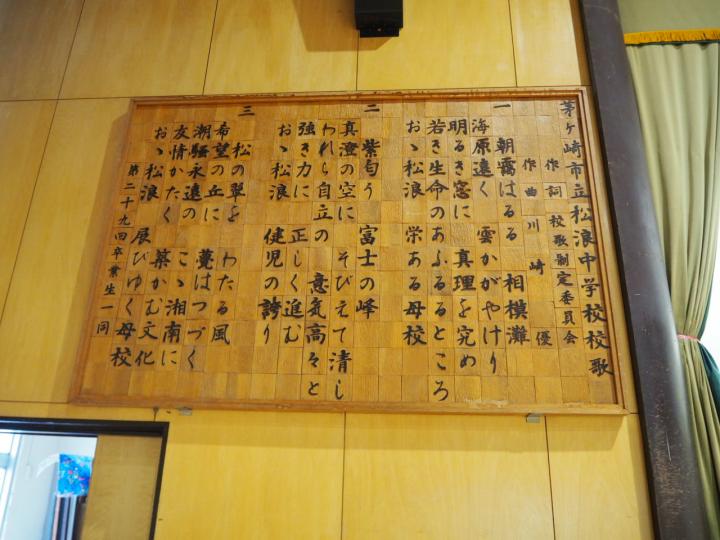 茅ヶ崎市立松浪中学校校歌
作詞 校歌制定委員会
作曲 川崎 優
一
朝靄はるる 相模灘
海原遠く 雲かがやけり
明るき窓に 真理を究め
若き生命のあふるるところ
おゝ松浪 栄ある母校
二
紫匂う 富士の峰
真澄の空に そびえて清し
われら自立の 意気高々と
強き力に 正しく進む
おゝ松浪 健児の誇り
三
松の翠を わたる風
希望の丘に 甍はつづく
潮騒永遠の こゝ湘南に
友情かたく 築かむ文化
おゝ松浪 展びゆく母校
第二十九回卒業生一同